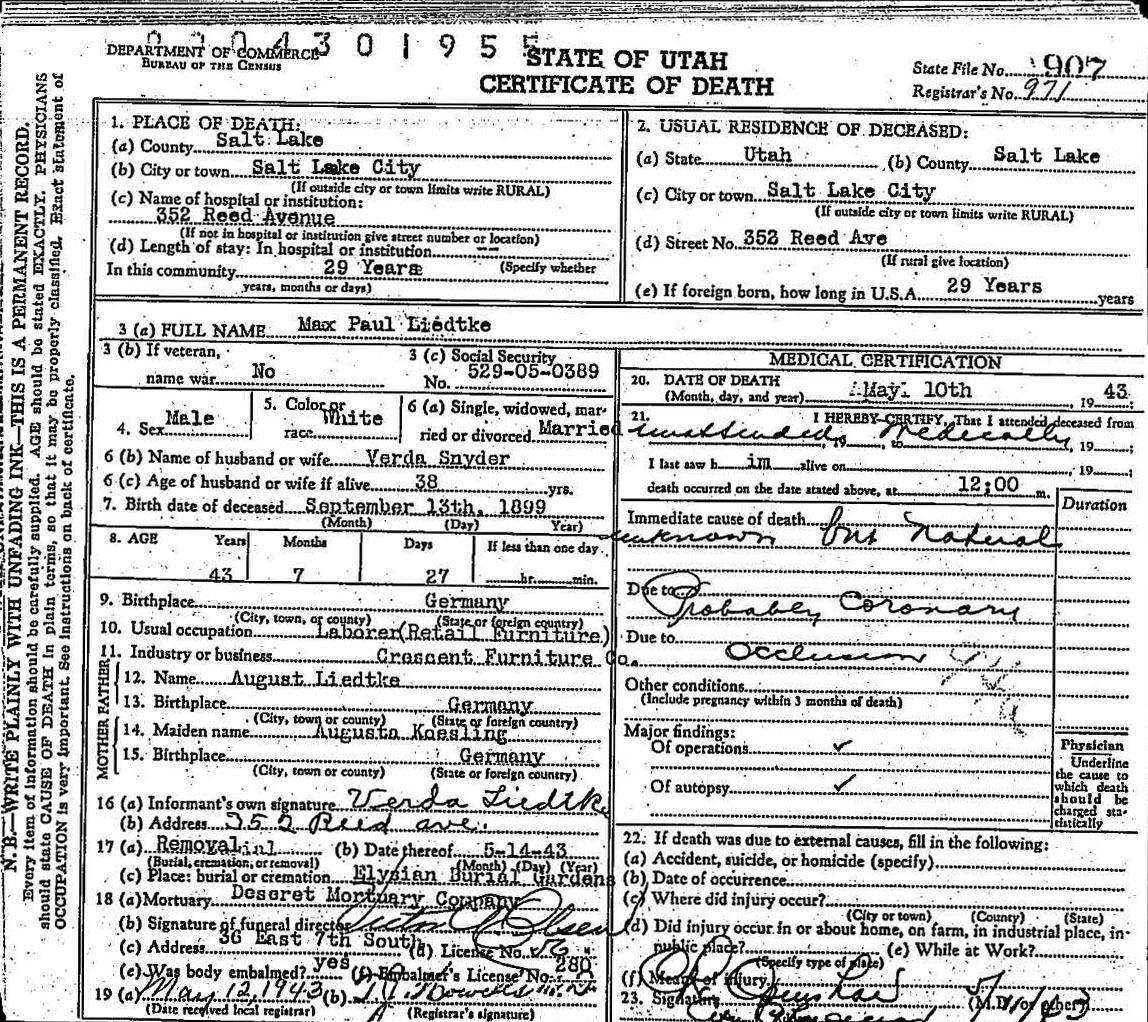 004301955
DEPARTMENT OF COMMERCE
BUREAU OF THE CENSUS
STATE OF UTAH
CERTIFICATE OF DEATH
State File No. 907
Registrar's No. 971
N.B.—WRITE PLAINLY WITH UNFADING INK—THIS IS A PERMANENT RECORD.
Every item of information should be carefully supplied. AGE should be stated EXACTLY. PHYSICIANS
should state CAUSE OF DEATH in plain terms, so that it may be properly classified. Exact statement of
OCCUPATION is very important. See instructions on back of certificate.
1. PLACE OF DEATH:
(a) County Salt Lake
(b) City or town Salt Lake City
(If outside city or town limits write RURAL)
(c) Name of hospital or institution:
352 Reed Avenue
(If not in hospital or institution give street number or location)
(d) Length of stay: In hospital or institution --
In this community 29 Years (Specify whether
years, months or days)
2. USUAL RESIDENCE OF DECEASED:
(a) State Utah (b) County Salt Lake
(c) City or town Salt Lake City
(If outside city or town limits write RURAL)
(d) Street No. 352 Reed Ave
(If rural give location)
(e) If foreign born, how long in U.S.A. 29 Years years
3 (a) FULL NAME Max Paul Liedtke
3 (b) If veteran,
name war No
3 (c) Social Security
No. 529-05-0389
4. Sex Male
5. Color or
race White
6 (a) Single, widowed, mar-
ried or divorced Married
6 (b) Name of husband or wife Verda Snyder
6 (c) Age of husband or wife if alive 38 yrs.
7. Birth date of deceased September 13th, 1899
(Month) (Day) Year)
8. AGE Years Months Days If less than one day
43 7 27 hr. min.
9. Birthplace Germany
(City, town, or county) (State or foreign country)
10. Usual occupation Laborer(Retail Furniture)
11. Industry or business Crescent Furniture Co.
FATHER
12. Name August Liedtke
13. Birthplace Germany
(City, town or county) (State or foreign country)
MOTHER
14. Maiden name Augusta Koesling
15. Birthplace Germany
(City, town or county) (State or foreign country)
16 (a) Informant's own signature Verda Liedtke
(b) Address 352 Reed ave.
17 (a) Removal (b) Date thereof 5-14-43
(Burial, cremation, or removal) (Month) (Day) (Year)
(c) Place: burial or cremation Elysian Burial Gardens
18 (a) Mortuary Deseret Mortuary Company
(b) Signature of funeral director Olsen
(c) Address 36 East 7th South (d) License No.
(e) Was body embalmed? yes (f) Embalmer's License No. 280
19 (a) May 12, 1943 (b)
(Date received local registrar) (Registrar's signature)
MEDICAL CERTIFICATION
20. DATE OF DEATH
(Month, day, and year) May 10th, 1943;
21. I HEREBY CERTIFY, That I attended deceased from
unattended, 19 to Medically, 19 ;
I last saw him alive on , 19 ;
death occurred on the date stated above, at 12:00 m.
Duration
Immediate cause of death
unknown but Natural
Due to
Probably Coronary
Due to
Occlusion
Other conditions
(Include pregnancy within 3 months of death)
Major findings:
Of operations ✓
Of autopsy ✓
Physician
Underline
the cause to
which death
should be
charged sta-
tistically
22. If death was due to external causes, fill in the following:
(a) Accident, suicide, or homicide (specify)
(b) Date of occurrence
(c) Where did injury occur?
(City or town) (County) (State)
(d) Did injury occur in or about home, on farm, in industrial place, in-
public place? (e) While at Work?
(Specify type of place)
(f) Means of injury
23. Signature (M.D. or other)